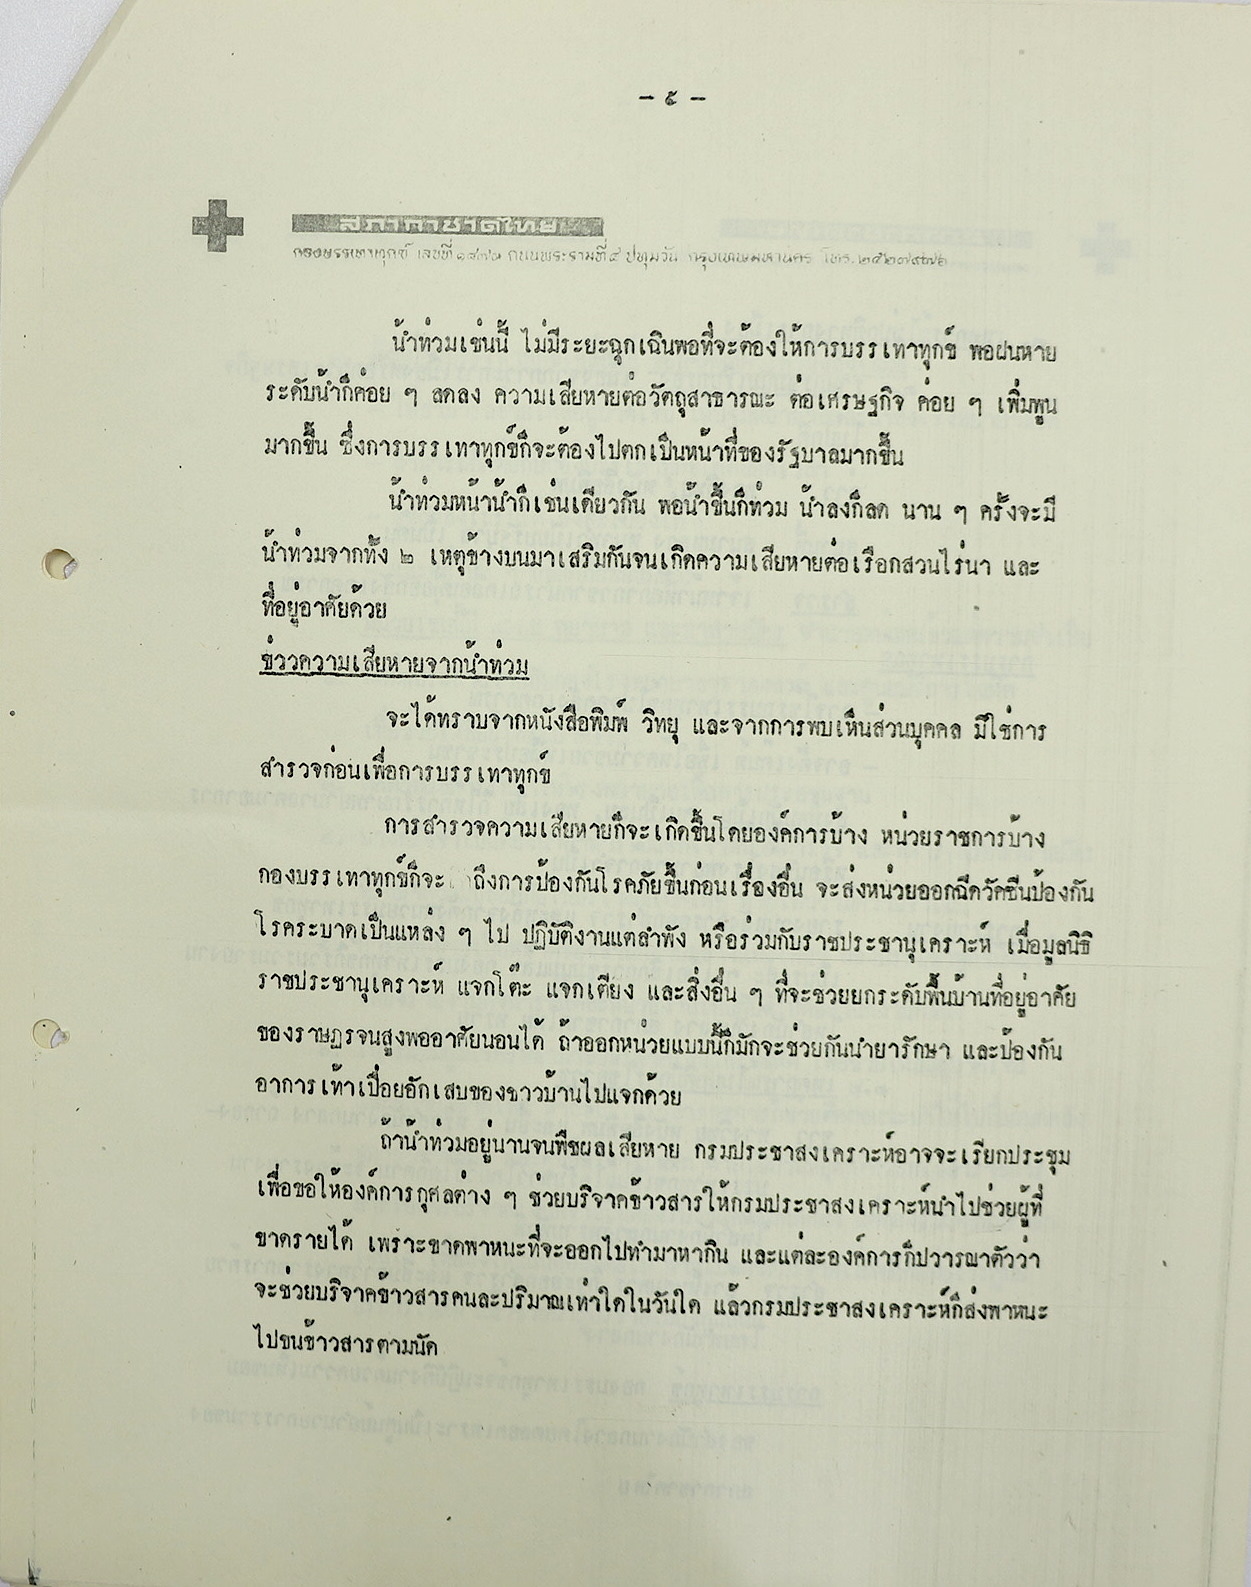 - ๕ -
สภากาชาดไทย
กองบรรเทาทุกข์ เลขที่ ๑๘๗๓ ถนนพระรามที่ ๔ ปทุมวัน กรุงเทพมหานคร โทร. ๒๕๒๗๘๗๖
น้ำท่วมเช่นนี้ ไม่มีระยะฉุกเฉินพอที่จะต้องให้การบรรเทาทุกข์ พอฝนหาย
ระดับน้ำก็ค่อย ๆ ลดลง ความเสียหายต่อวัตถุสาธารณะ ต่อเศรษฐกิจ ค่อย ๆ เพิ่มพูน
มากขึ้น ซึ่งการบรรเทาทุกข์ก็จะต้องไปตกเป็นหน้าที่ของรัฐบาลมากขึ้น
น้ำท่วมหน้าน้ำก็เช่นเดียวกัน พอน้ำขึ้นก็ท่วม น้ำลงก็ลด นาน ๆ ครั้งจะมี
น้ำท่วมจากทั้ง ๒ เหตุข้างบนมาเสริมกันจนเกิดความเสียหายต่อเรือกสวนไร่นา และ
ที่อยู่อาศัยด้วย
ข่าวความเสียหายจากน้ำท่วม
จะได้ทราบจากหนังสือพิมพ์ วิทยุ และจากการพบเห็นส่วนบุคคล มิใช่การ
สำรวจก่อนเพื่อการบรรเทาทุกข์
การสำรวจความเสียหายก็จะเกิดขึ้นโดยองค์การบ้าง หน่วยราชการบ้าง
กองบรรเทาทุกข์ก็จะ ถึงการป้องกันโรคภัยขึ้นก่อนเรื่องอื่น จะส่งหน่วยออกฉีดวัคซีนป้องกัน
โรคระบาดเป็นแหล่ง ๆ ไป ปฏิบัติงานแต่ลำพัง หรือร่วมกับราชประชานุเคราะห์ เมื่อมูลนิธิ
ราชประชานุเคราะห์ แจกโต๊ะ แจกเตียง และสิ่งอื่น ๆ ที่จะช่วยยกระดับพื้นบ้านที่อยู่อาศัย
ของราษฎรจนสูงพออาศัยนอนได้ ถ้าออกหน่วยแบบนี้ก็มักจะช่วยกันนำยารักษา และป้องกัน
อาการเท้าเปื่อยอักเสบของชาวบ้านไปแจกด้วย
ถ้าน้ำท่วมอยู่นานจนพืชผลเสียหาย กรมประชาสงเคราะห์อาจจะเรียกประชุม
เพื่อขอให้องค์การกุศลต่าง ๆ ช่วยบริจาคข้าวสารให้กรมประชาสงเคราะห์นำไปช่วยผู้ที่
ขาดรายได้ เพราะขาดพาหนะที่จะออกไปทำมาหากิน และแต่ละองค์การก็ปวารณาตัวว่า
จะช่วยบริจาคข้าวสารคนละปริมาณเท่าใดในวันใด แล้วกรมประชาสงเคราะห์ก็ส่งพาหนะ
ไปขนข้าวสารตามนัด